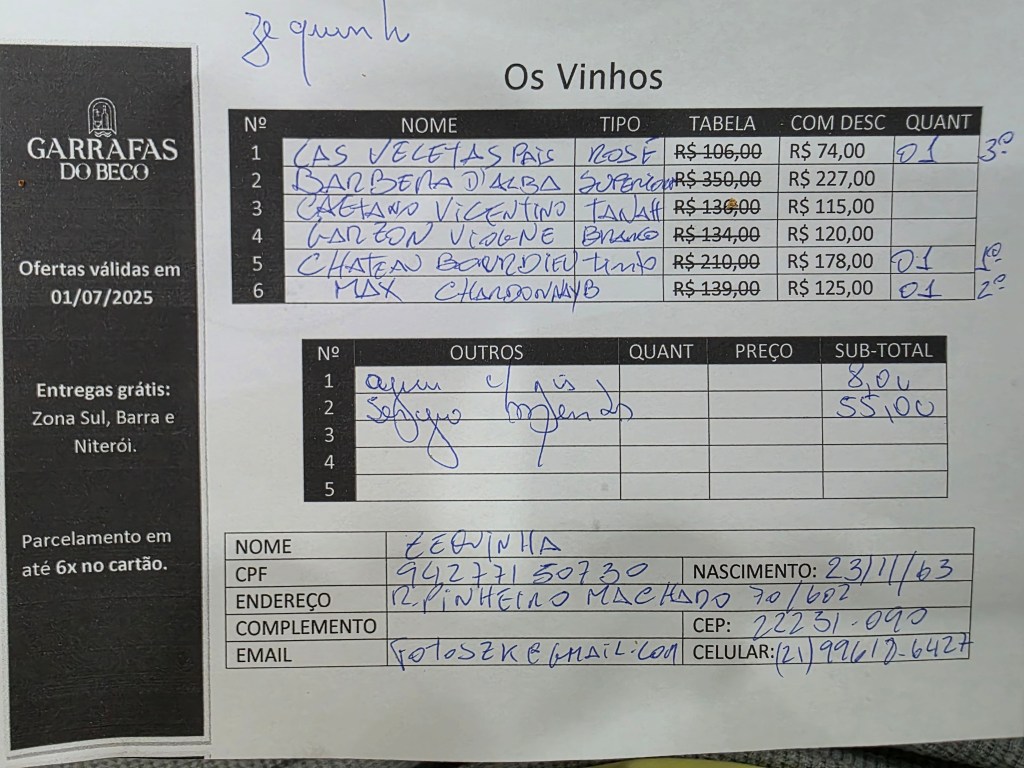 Zequinh
Os Vinhos
GARRAFAS
DO BECO
Ofertas válidas em
01/07/2025
Entregas grátis:
Zona Sul, Barra e
Niterói.
Parcelamento em
até 6x no cartão.
Nº NOME TIPO TABELA COM DESC QUANT
1 LAS VELETAS PAIS ROSÉ R$ 106,00 R$ 74,00 01 3º
2 BARBERA D'ALBA SUPERIOR R$ 350,00 R$ 227,00
3 CAETANO VICENTINO TANAH R$ 136,00 R$ 115,00
4 GARZON VIOGNE BRANCO R$ 134,00 R$ 120,00
5 CHATEAU BOURDIEU tinto R$ 210,00 R$ 178,00 01 1º
6 MAX CHARDONNAY B R$ 139,00 R$ 125,00 01 2º
Nº OUTROS QUANT PREÇO SUB-TOTAL
1 agua c/ gás 8,00
2 55,00
3
4
5
NOME ZEQUINHA
CPF 94277150730 NASCIMENTO: 23/11/63
ENDEREÇO R. PINHEIRO MACHADO 70/602
COMPLEMENTO CEP: 22231-090
EMAIL FOTOSZK@GMAIL.COM CELULAR: (21) 99618-6427